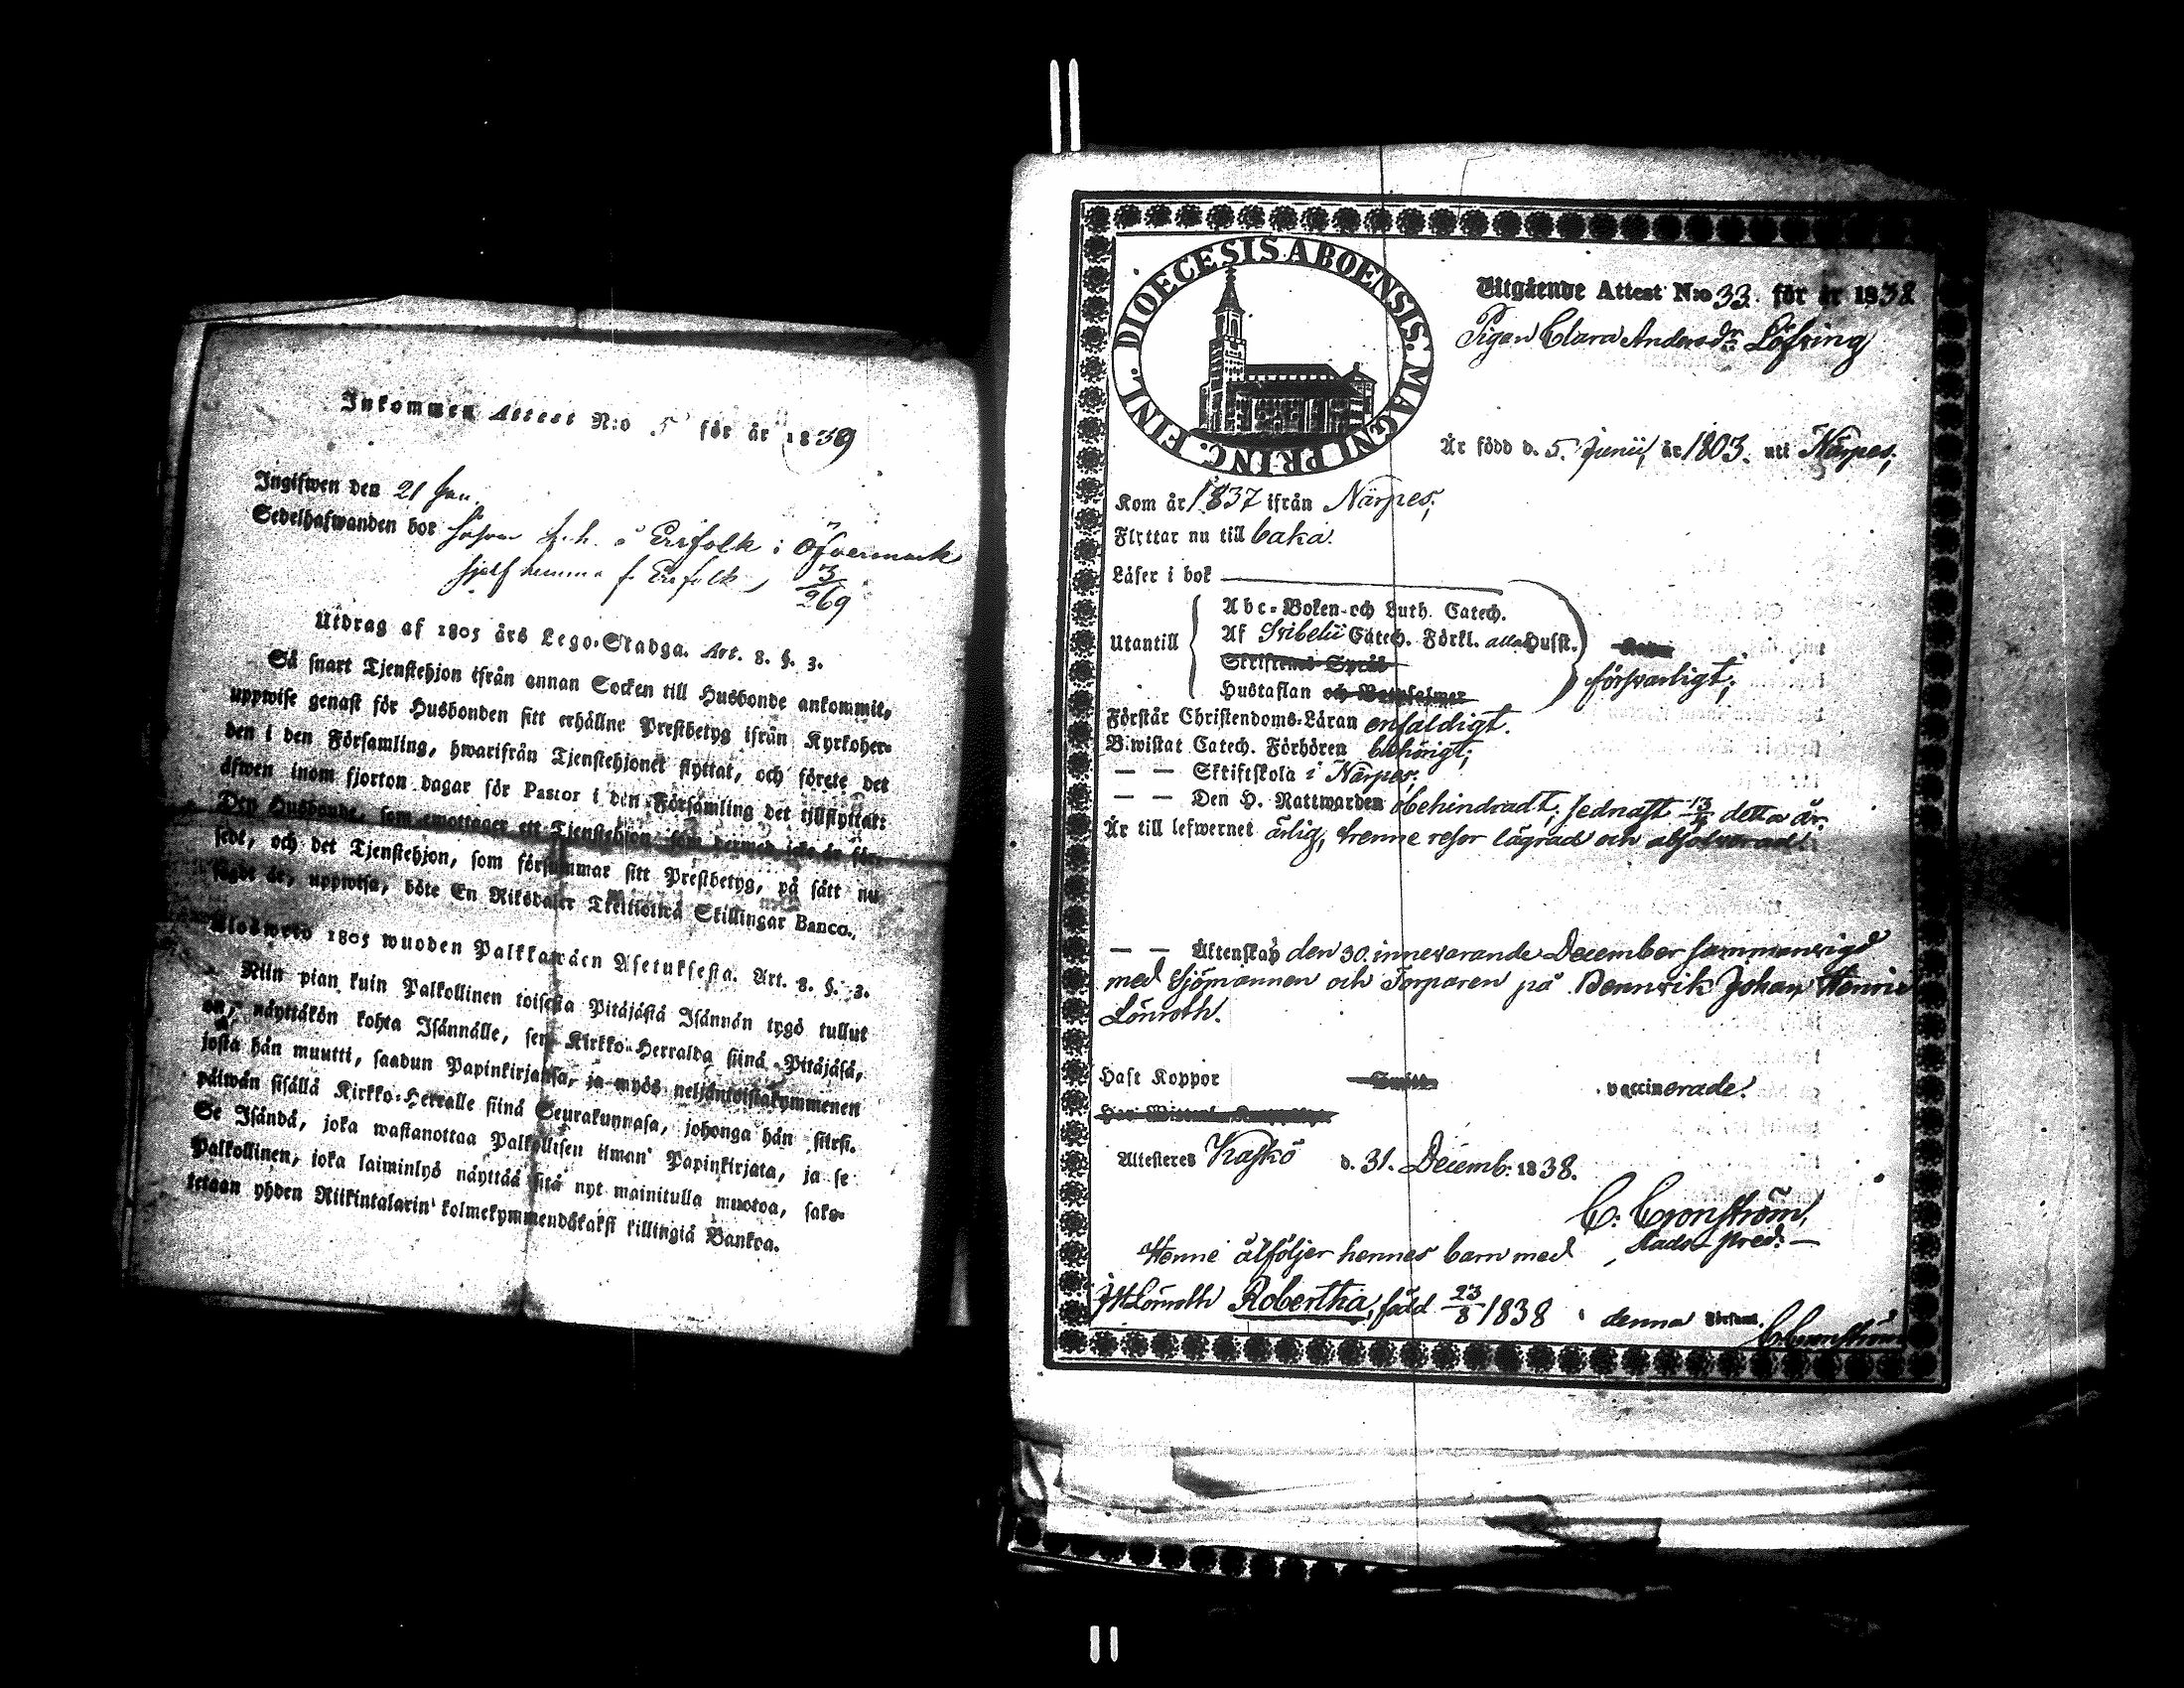 Inkommen Attest N:o 5 för år 1839
Ingifwen den 21 Jan.
Sedelhafwanden bor hos f. h. å Erifolk i Öfvermark
sjelf hemma fr Erifolk, 3/269
Utdrag af 1805 års Lego-Stadga. Art. 8. §. 3.
Så snart Tjenstehjon ifrån annan Socken till Husbonde ankommit,
uppwise genast för Husbonden sitt erhållne Prestbetyg ifrån Kyrkoher-
den i den Församling, hwarifrån Tjenstehjonet flyttat, och förete det
äfwen inom fjorton dagar för Pastor i den Församling det tillflyttat:
Den Husbonde, som emottager ett Tjenstehjon, som dermed icke är för-
sedt, och det Tjenstehjon, som försummar sitt Prestbetyg, på sätt nu
sagdt är, uppwisa, böte En Riksdaler Trettiotwå Skillingar Banco.
Ulosweto 1805 wuoden Palkkawäen Asetuksesta. Art. 8. §. 3.
Niin pian kuin Palkollinen toisesta Pitäjästä Isännän tygö tullut
on, näyttäkön kohta Isännälle, sen Kirkko-Herralda siinä Pitäjäsä,
josta hän muutti, saadun Papinkirjansa, ja myös neljäntoistakymmenen
päiwän sisällä Kirkko-Herralle siinä Seurakunnasa, johonga hän siirsi.
Se Isändä, joka wastanottaa Palkollisen ilman Papinkirjata, ja se
Palkollinen, joka laiminlyö näyttää sitä nyt mainitulla muotoa, sako-
tetaan yhden Riikintalarin kolmekymmendäkaksi killingiä Bankoa.
DIOECESIS ABOENSIS. MAGNI PRINC. FINL.
Utgående Attest N:o 33. för år 1838
Pigan Clara Andersdr Löfving
Är född d. 5. Junii, år 1803. uti Närpes,
Kom år 1837 ifrån Närpes,
Flyttar nu till baka.
Läser i bok
Utantill
Abc-Boken och Luth. Catech.
Af Svibelii Catech. Förkl. alla Hufst.
Skriftens Språk
Hustaflan och Botpsalmer
försvarligt;
Förstår Christendoms-Läran enfaldigt.
Biwistat Catech. Förhören behörigt;
— — Skriftskola i Närpes;
— — Den H. Nattwarden obehindradt, sednast detta år.
Är till lefwernet ärlig, trenne resor lägrad och absolverad
— — Äktenskap den 30. innevarande December sammanvigd
med Sjömannen och Torparen på Bennvik Johan Henric
Lönroth.
Haft Koppor vaccinerade.
Attesteres Kaskö d. 31. Decemb: 1838.
C. Cronström,
Stads-Pred: —
Henne åtföljer hennes barn med
J H Lönroth Robertha, född 23/8 1838 i denna Församl.
C. Cronström